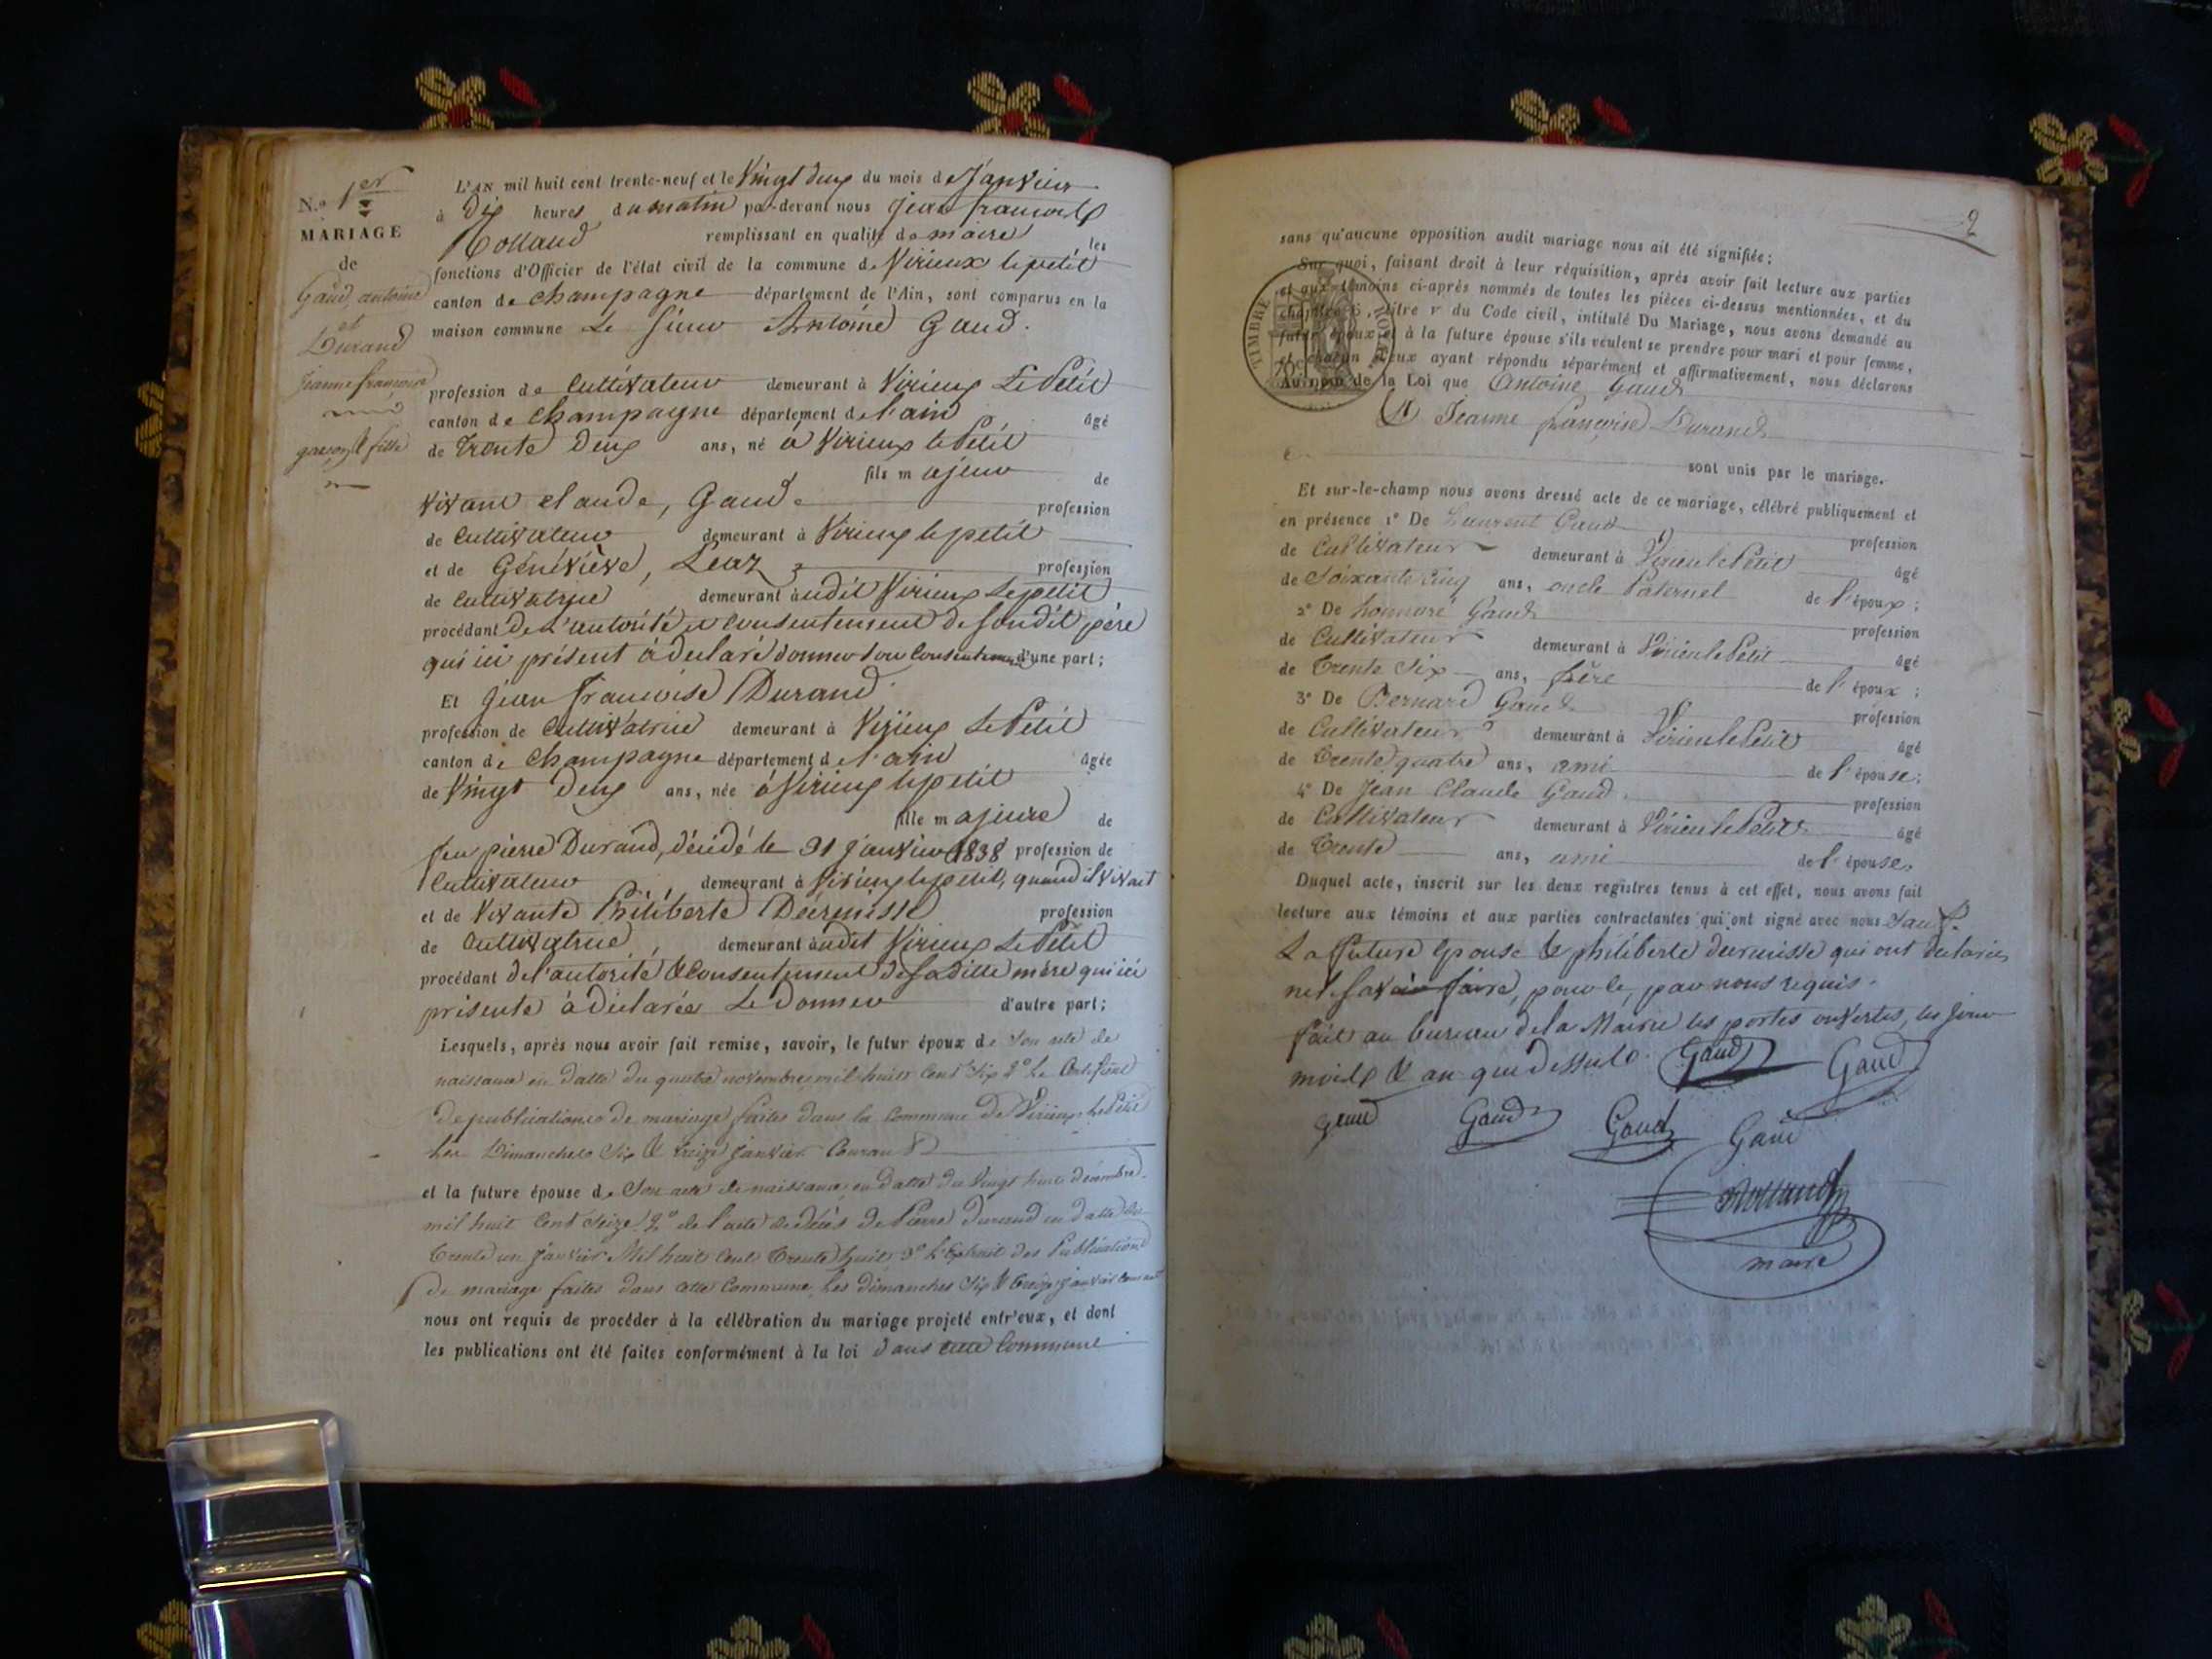 N.º 1er
MARIAGE
de
Gaud, antoine
et
Durand
Jeanne françoise
garçon & fille
L'AN mil huit cent trente-neuf et le Vingt deux du mois de Janvier
à Dix heures du matin par-devant nous jean francois
Rolland remplissant en qualité de maire les
fonctions d'Officier de l'état civil de la commune de Virieux le petit
canton de champagne département de l'Ain, sont comparus en la
maison commune Le sieur Antoine Gaud.
profession de Cultivateur demeurant à Virieux Le Petit
canton de champagne département de l'ain âgé
de Trente Deux ans, né à Virieux le Petit
fils majeur de
vivant claude, Gaud profession
de Cultivateur demeurant à Virieux le petit
et de Généviève, Leaz profession
de cultivatrice demeurant audit Virieux Le petit
procédant De L'autorité et consentement de sondit père
qui ici présent à déclaré donner son consentement d'une part;
Et jean francoise Durand.
profession de Cultivatrice demeurant à Virieux Le Petit
canton de champagne département de l'ain âgée
de Vingt Deux ans, née à Virieux le petit
fille majeure de
feu pierre Durand, décédé le 31 janvier 1838 profession de
Cultivateur demeurant à Virieux le petit, quand il vivait
et de vivante Philiberte Décrénisse profession
de Cultivatrice, demeurant audit Virieux Le Petit
procédant de l'autorité & consentement de sadite mère qui ici
présente à déclarée Le Donner d'autre part;
Lesquels, après nous avoir fait remise, savoir, le futur époux de Son acte de
naissance en datte du quatre novembre mil huit Cent Six 2º Le Certificat
de publications de mariage faites dans la Commune de Virieux Le Petit
Les Dimanches Six & treize janvier Courant
et la future épouse de Son acte de naissance en datte du Vingt huit décembre
mil huit Cent Seize 2º de l'acte de décès de Pierre Durand en datte du
trente un janvier Mil huit Cent Trente huit 3º L'Extrait des Publications
de mariage faites dans cette Commune, les dimanches Six & treize janvier courant
nous ont requis de procéder à la célébration du mariage projeté entr'eux, et dont
les publications ont été faites conformément à la loi dans cette Commune
2
sans qu'aucune opposition audit mariage nous ait été signifiée;
Sur quoi, faisant droit à leur réquisition, après avoir fait lecture aux parties
et aux témoins ci-après nommés de toutes les pièces ci-dessus mentionnées, et du
chapitre 6, titre v du Code civil, intitulé Du Mariage, nous avons demandé au
futur époux et à la future épouse s'ils veulent se prendre pour mari et pour femme,
et chacun d'eux ayant répondu séparément et affirmativement, nous déclarons
Au nom de la Loi que Antoine Gaud
Et Jeanne françoise Durand
sont unis par le mariage.
Et sur-le-champ nous avons dressé acte de ce mariage, célébré publiquement et
en présence 1º De Laurent Gaud profession
de Cultivateur demeurant à Virieu le Petit âgé
de Soixante Cinq ans, oncle Paternel de l'époux;
2º De honnoré Gaud profession
de Cultivateur demeurant à Virieu le Petit âgé
de Trente Six ans, frère de l'époux;
3º De Bernard Gaud profession
de Cultivateur demeurant à Virieu le Petit âgé
de Trente quatre ans, ami de l'épouse;
4º De Jean Claude Gaud profession
de Cultivateur demeurant à Virieu le Petit âgé
de Trente ans, ami de l'épouse.
Duquel acte, inscrit sur les deux registres tenus à cet effet, nous avons fait
lecture aux témoins et aux parties contractantes qui ont signé avec nous Sauf.
La future épouse & philiberte decrenisse qui ont déclarées
ne le savoir faire, pour le, par nous requis.
fait au bureau de la Mairie les portes ouvertes, les jour
mois & an que dessus.
Gaud Gaud
gaud Gaud Gaud Gaud
Rolland
maire
TIMBRE ROYAL